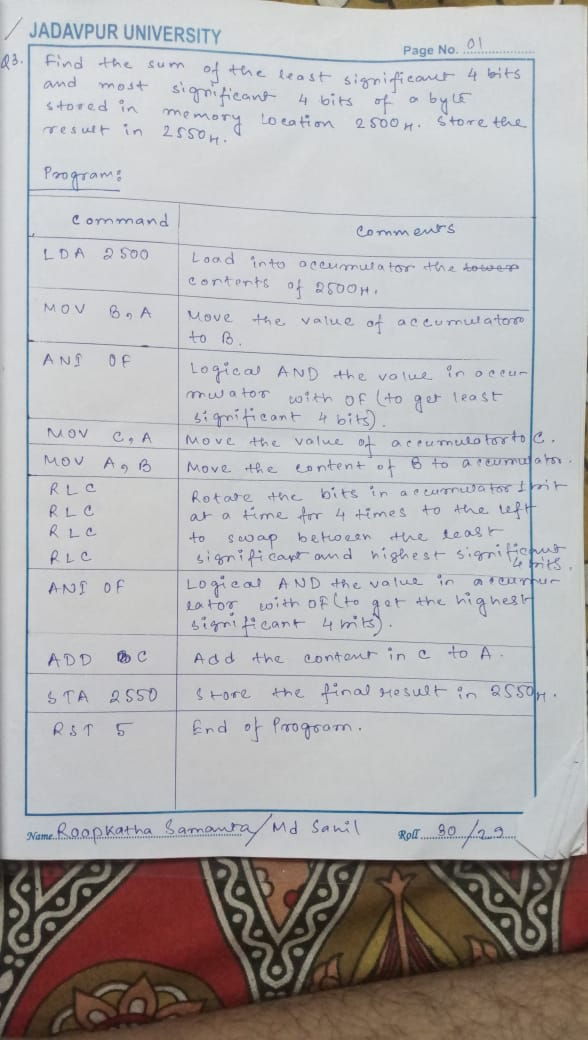 JADAVPUR UNIVERSITY
Page No. 01
Q3. Find the sum of the least significant 4 bits
and most significant 4 bits of a byte
stored in memory location 2500H. Store the
result in 2550H.
Program:
Command Comments
LDA 2500 Load into accumulator the lower
contents of 2500H.
MOV B, A Move the value of accumulator
to B.
ANI 0F Logical AND the value in accu-
mulator with 0F (to get least
significant 4 bits).
MOV C, A Move the value of accumulator to C.
MOV A, B Move the content of B to accumulator.
RLC Rotate the bits in accumulator 1 bit
RLC at a time for 4 times to the left
RLC to swap between the least
RLC significant and highest significant
4 bits.
ANI 0F Logical AND the value in accumu-
lator with 0F (to get the highest
significant 4 bits).
ADD C Add the content in C to A.
STA 2550 Store the final result in 2550H.
RST 5 End of Program.
Name Roopkatha Samanta / Md Sahil Roll 30/29